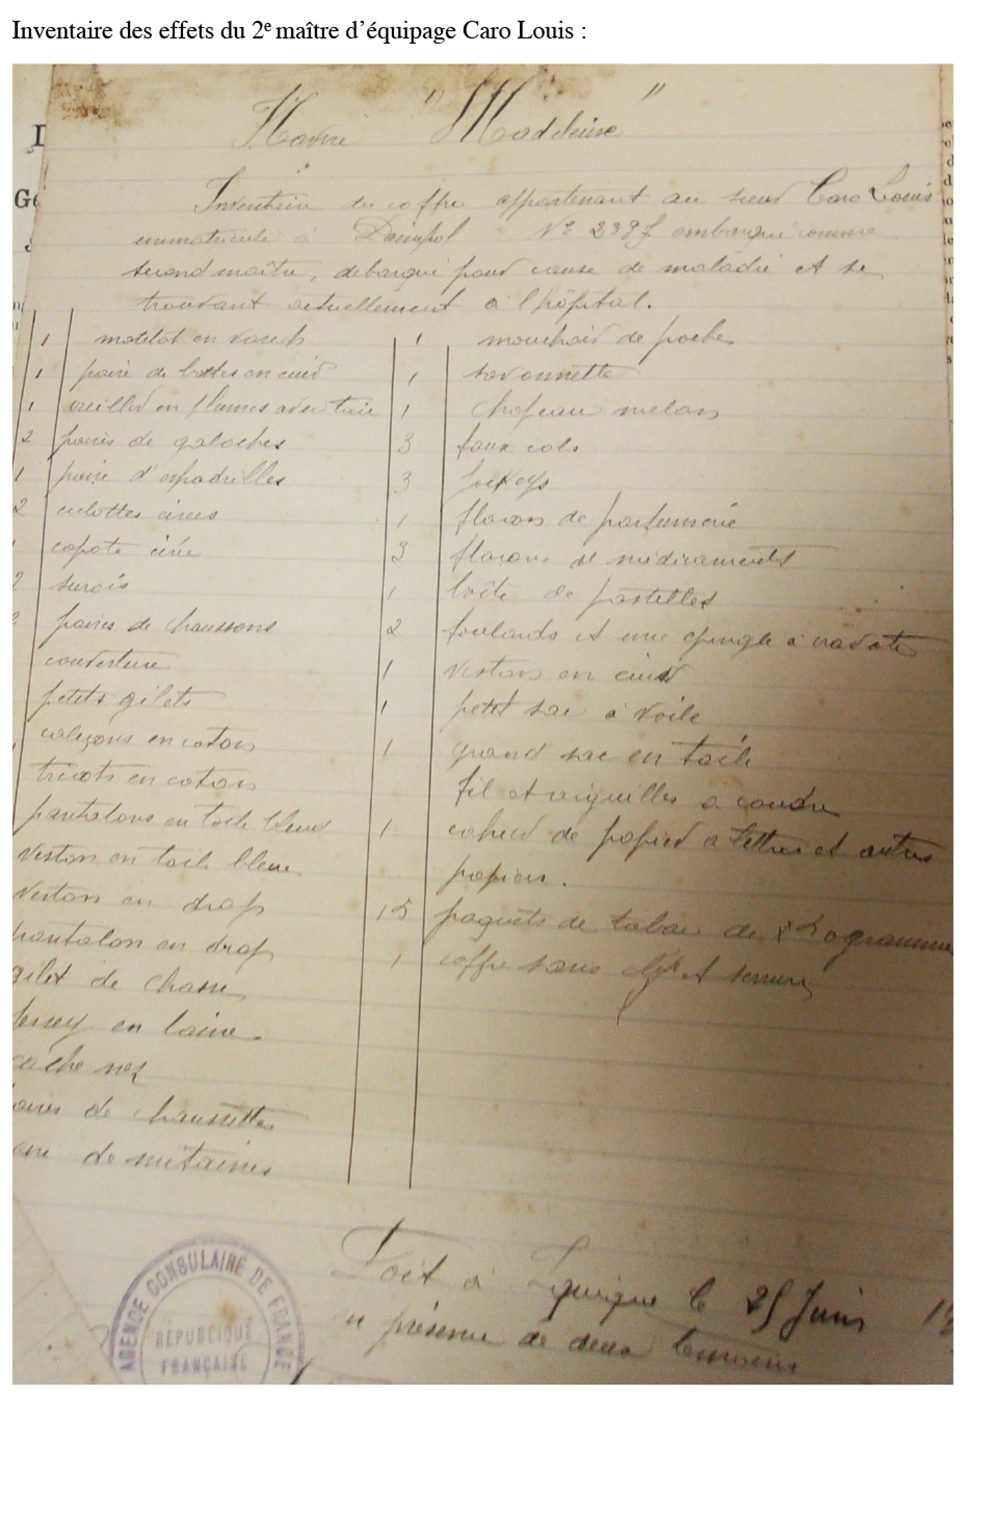 Inventaire des effets du 2e maître d’équipage Caro Louis :
Navire "Madeleine"
Inventaire du coffre appartenant au sieur Caro Louis
immatriculé à Paimpol No embarqué comme
second maître, débarqué pour cause de maladie et se
trouvant actuellement à l'hôpital.
1 matelot en varech
1 paire de bottes en cuir
1 oreiller en plumes avec taie
2 paires de galoches
1 paire d'espadrilles
2 culottes cirées
capote cirée
2 surois
paires de chaussons
couverture
petits gilets
caleçons en coton
tricots en coton
pantalons en toile bleue
veston en toile bleue
veston en drap
pantalon en drap
gilet de chasse
jersey en laine
cache nez
de chaussettes
de mitaines
1 mouchoir de poche
1 savonnette
1 chapeau melon
3 faux cols
3 jockeys
1 flacon de parfumerie
3 flacons de médicaments
1 boîte de pastilles
2 foulards et une épingle à cravate
1 veston en cuir
1 petit sac à voile
1 grand sac en toile
fil et aiguilles à coudre
1 cahier de papier à lettres et autres
papiers.
15 paquets de tabac de grammes
1 coffre sans clef et serrure
Fait à Iquique le 25 Juin 1
en présence de deux témoins
AGENCE CONSULAIRE DE FRANCE
RÉPUBLIQUE
FRANÇAISE